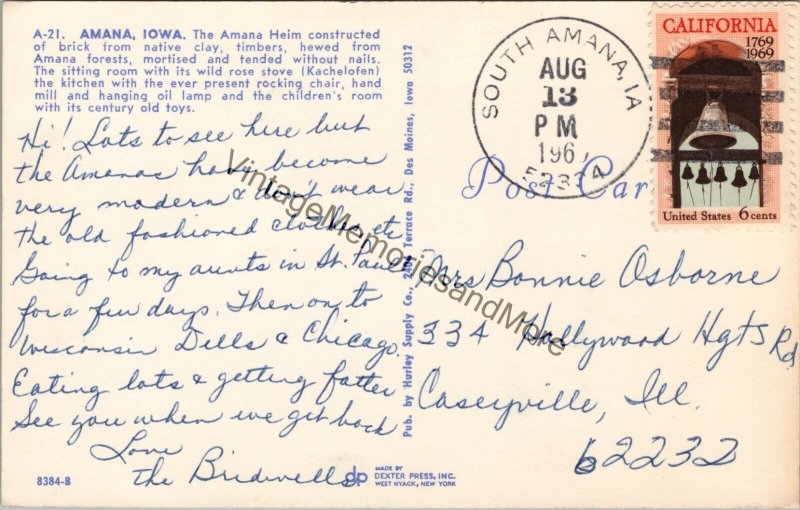 A-21. AMANA, IOWA. The Amana Heim constructed
of brick from native clay, timbers, hewed from
Amana forests, mortised and tended without nails.
The sitting room with its wild rose stove (Kachelofen)
the kitchen with the ever present rocking chair, hand
mill and hanging oil lamp and the children's room
with its century old toys.
Hi! Lots to see here but
the Amanas have become
very modern & don't wear
the old fashioned clothes, etc
Going to my aunts in St. Paul
for a few days. Then on to
Wisconsin Dells & Chicago.
Eating lots & getting fatter
See you when we get back
Love
the Bridwells
8384-B
dp
MADE BY
DEXTER PRESS, INC.
WEST NYACK, NEW YORK
Pub. by Hurley Supply Co., Terrace Rd., Des Moines, Iowa 50312
SOUTH AMANA, IA
AUG
13
PM
196
52334
CALIFORNIA
1769
1969
United States 6 cents
Post Car
Mrs Bonnie Osborne
334 Hollywood Hgts Rd
Caseyville, Ill.
62232
VintageMemoriesandMore